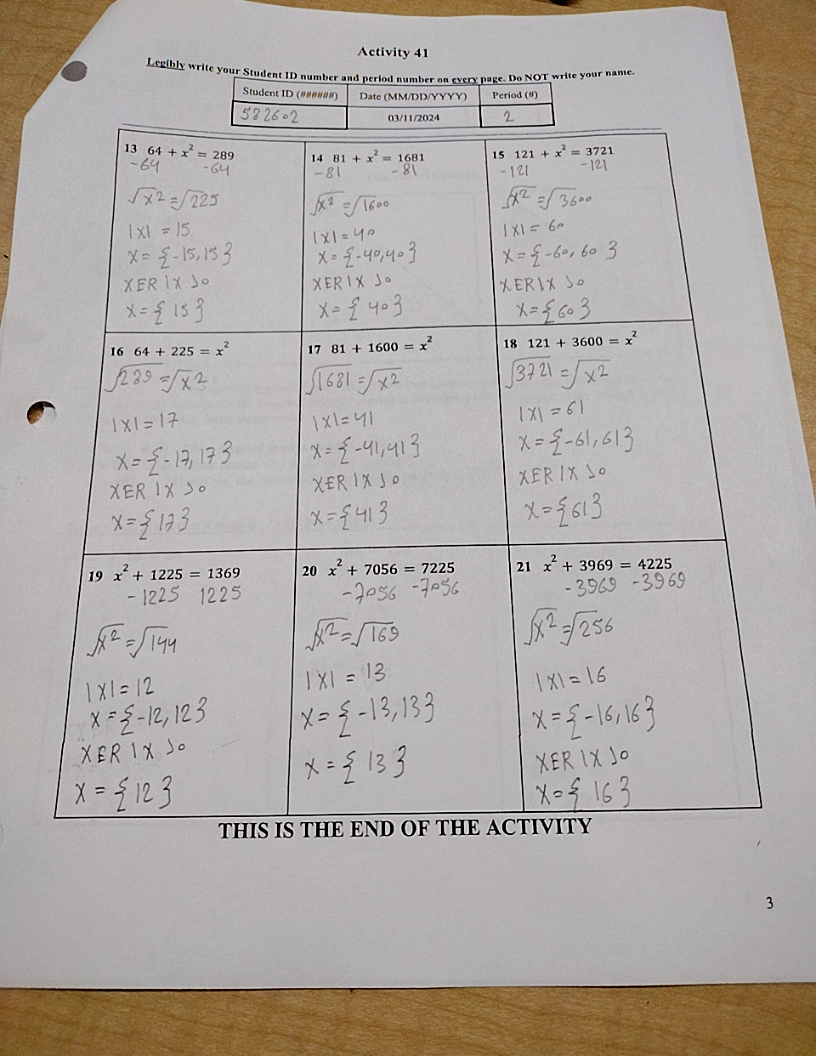 Activity 41
Legibly write your Student ID number and period number on every page. Do NOT write your name.
Student ID (######) Date (MM/DD/YYYY) Period (#)
582602 03/11/2024 2
13 64 + x² = 289
-64 -64
√x² = √225
|x| = 15
x = {-15, 15}
XER | X >0
x = {15}
14 81 + x² = 1681
-81 -81
√x² = √1600
|x| = 40
x = {-40, 40}
XER | X >0
x = {40}
15 121 + x² = 3721
-121 -121
√x² = √3600
|x| = 60
x = {-60, 60}
XER | X >0
x = {60}
16 64 + 225 = x²
√289 = √x²
|x| = 17
x = {-17, 17}
XER | X >0
x = {17}
17 81 + 1600 = x²
√1681 = √x²
|x| = 41
x = {-41, 41}
XER | X >0
x = {41}
18 121 + 3600 = x²
√3721 = √x²
|x| = 61
x = {-61, 61}
XER | X >0
x = {61}
19 x² + 1225 = 1369
-1225 1225
√x² = √144
|x| = 12
x = {-12, 12}
XER | X >0
x = {12}
20 x² + 7056 = 7225
-7056 -7056
√x² = √169
|x| = 13
x = {-13, 13}
x = {13}
21 x² + 3969 = 4225
-3969 -3969
√x² = √256
|x| = 16
x = {-16, 16}
XER | X >0
x = {16}
THIS IS THE END OF THE ACTIVITY
3